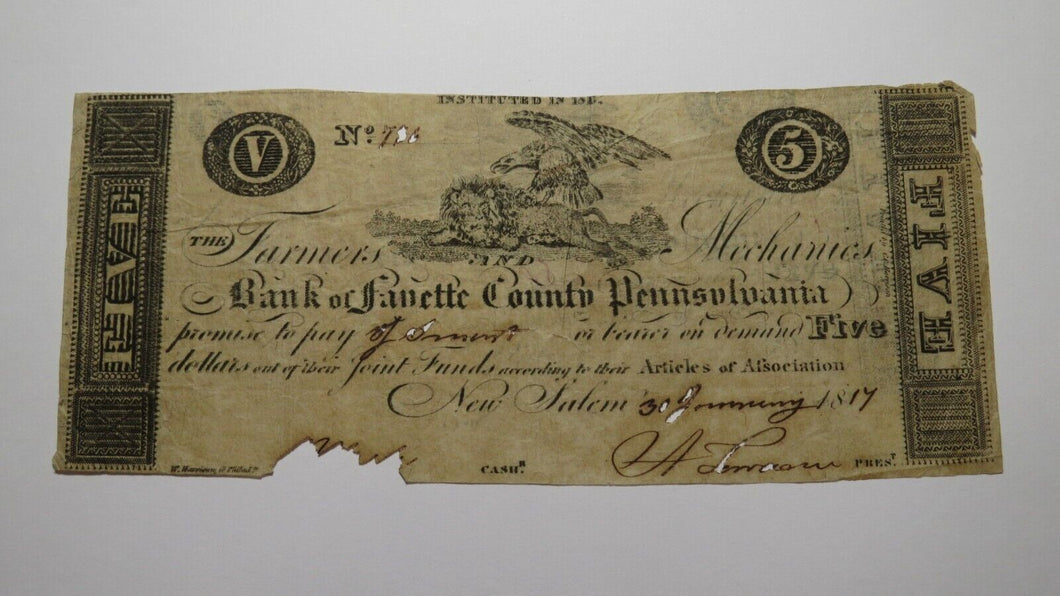 INSTITUTED IN
V
Nº
5
FIVE
THE Farmers AND Mechanics
Bank of Fayette County Pennsylvania
promise to pay or bearer on demand Five
dollars out of their joint Funds according to their Articles of Aſsociation
New Salem 30 January 1817
W. Harrison Philadª
CASHR.
PREST.
FIVE